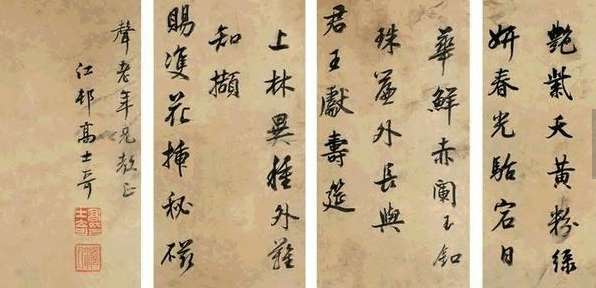 艷紫夭黃粉綠
妍春光駘宕日
華鮮赤闌玉釦
珠簾外長與
君王獻壽筵
上林異種外難
知擷
賜雙花插秘磁
聲老年兄教正
江邨高士奇